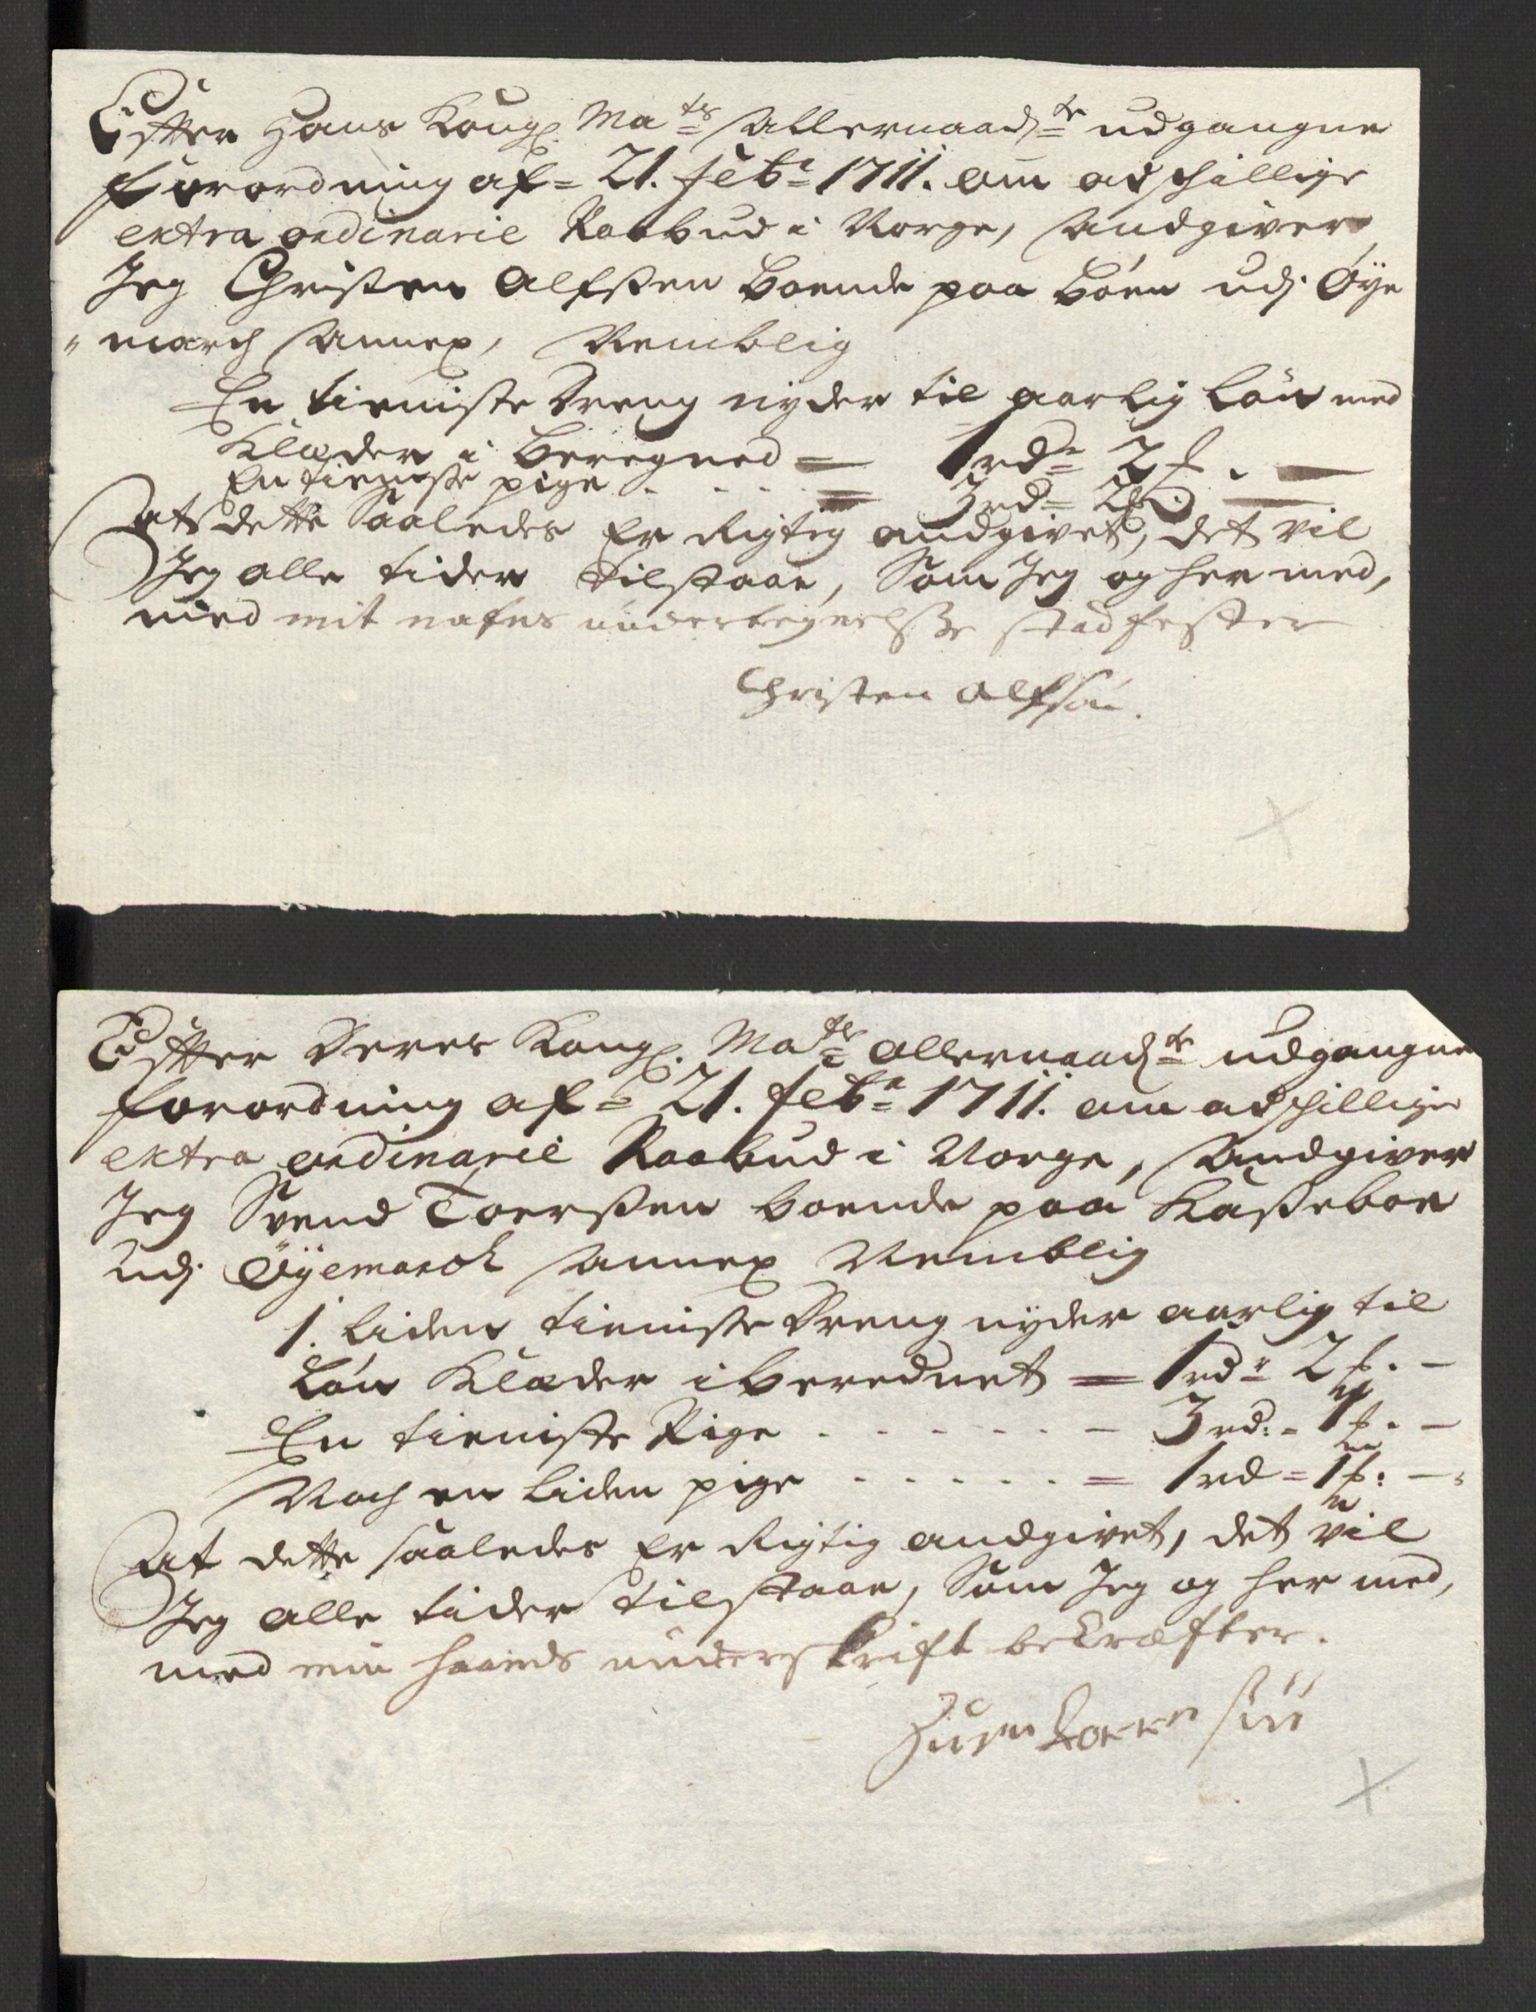 Efter Hans Kongl. Mats Allernaadste udgangne
forordning af = 21. febr 1711. om adschillige
extra ordinarie Paabud i Norge, Andgiver
Jeg Christen Alfssen boende paa Böen udj Öye
march Annex, Nemblig
En tieniste Dreng nyder til aarlig Lön med
Klæder i beregned = 1 rdr 2 s.
En tieniste pige . . . . = 3 rd = 2 s.
At dette Saaledes Er Rigtig andgivet, det vil
Jeg alle tider tilstaae, Som Jeg og her med,
med mit nafns undertegnelsße stadfester
Christen Alfsön.
Efter Deres Kongl. Mats Allernaadste udgangne
forordning af = 21. febr 1711. om adschillige
extra ordinarie Paabud i Norge, Andgiver
Jeg Svend Toerssen boende paa Kasseboe
udj Öyemarck Annex Nemblig
1. liden tieniste Dreng nyder aarlig til
Lön Klæder iberednet = 1 rdr 2 s. -
En tieniste Pige . . . . . - 3 rd: - 1 s. -
Noch en liden pige . . . . . = 1 rd = 1 s. -
At dette saaledes Er Rigtig andgivet, det vil
Jeg alle tider tilstaae, Som Jeg og her med,
med min haands underskrift bekræfter.